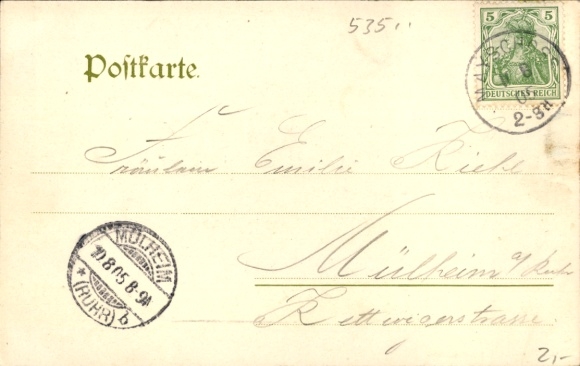 535..
5 5
DEUTSCHES REICH
2-3N
Postkarte.
Fräulein Emilie Kiehl
MÜLHEIM
10.8.05.8-9A
* (RUHR) b
Mülheim a/Ruhr
Kettwigerstrasse.
2,-